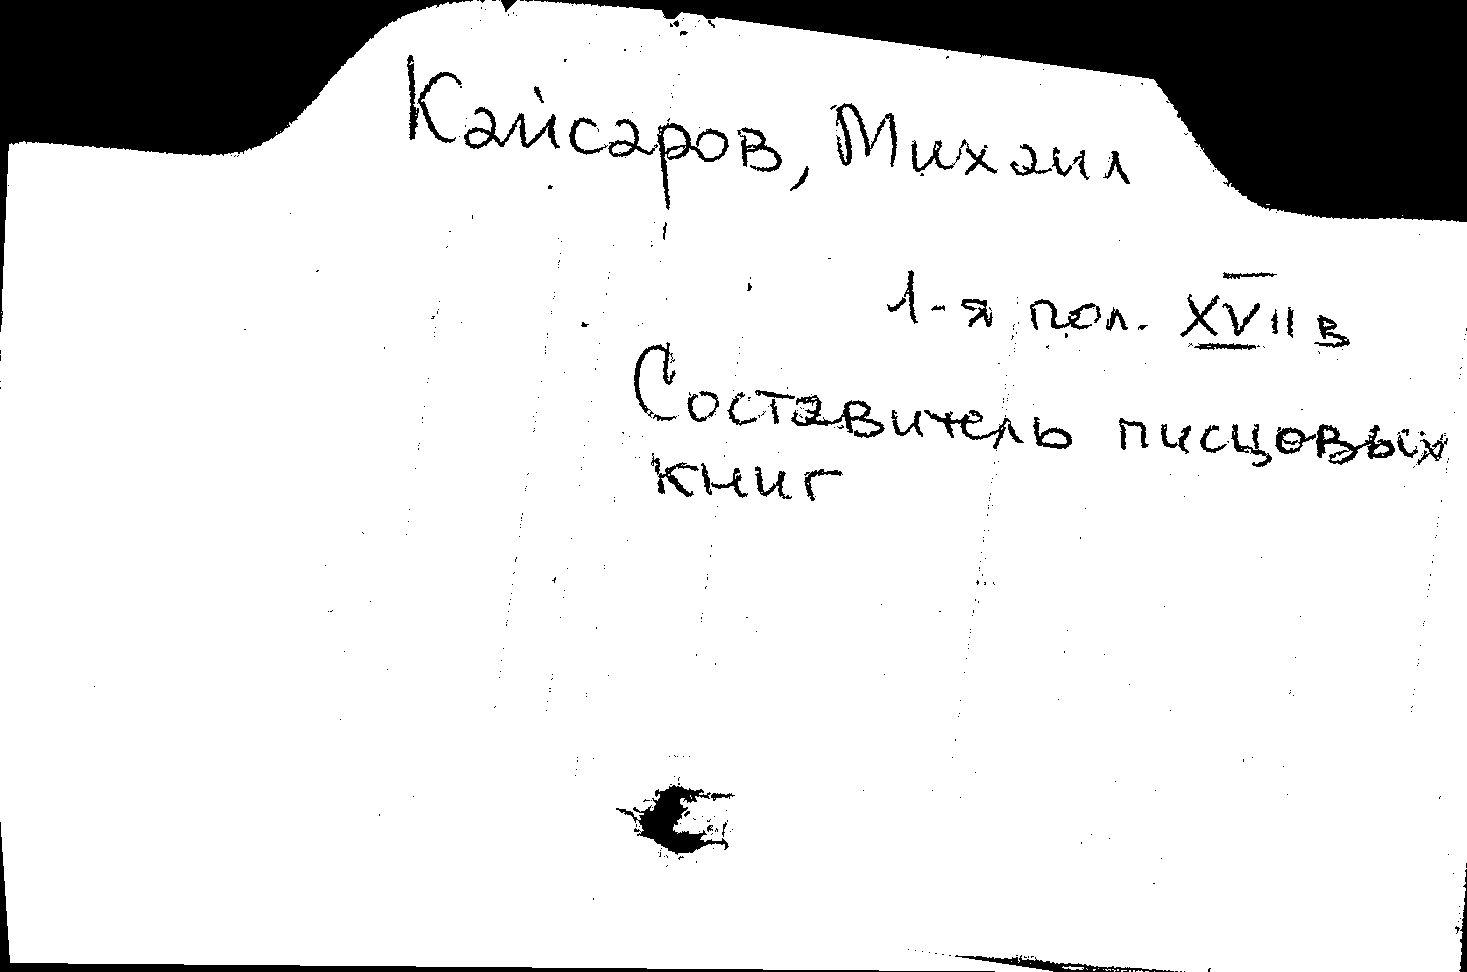 Кайсаров, Михаил
1-я пол. XVII в
Составитель писцовых
книг